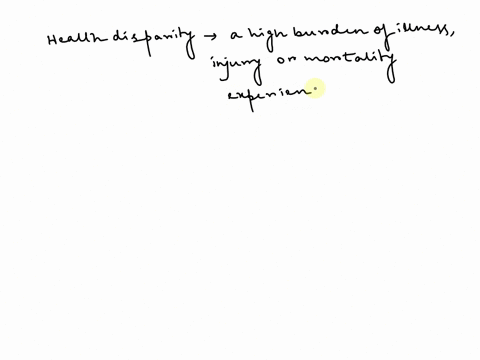 Health disparity → a high burden of illness,
injury or mortality
experien